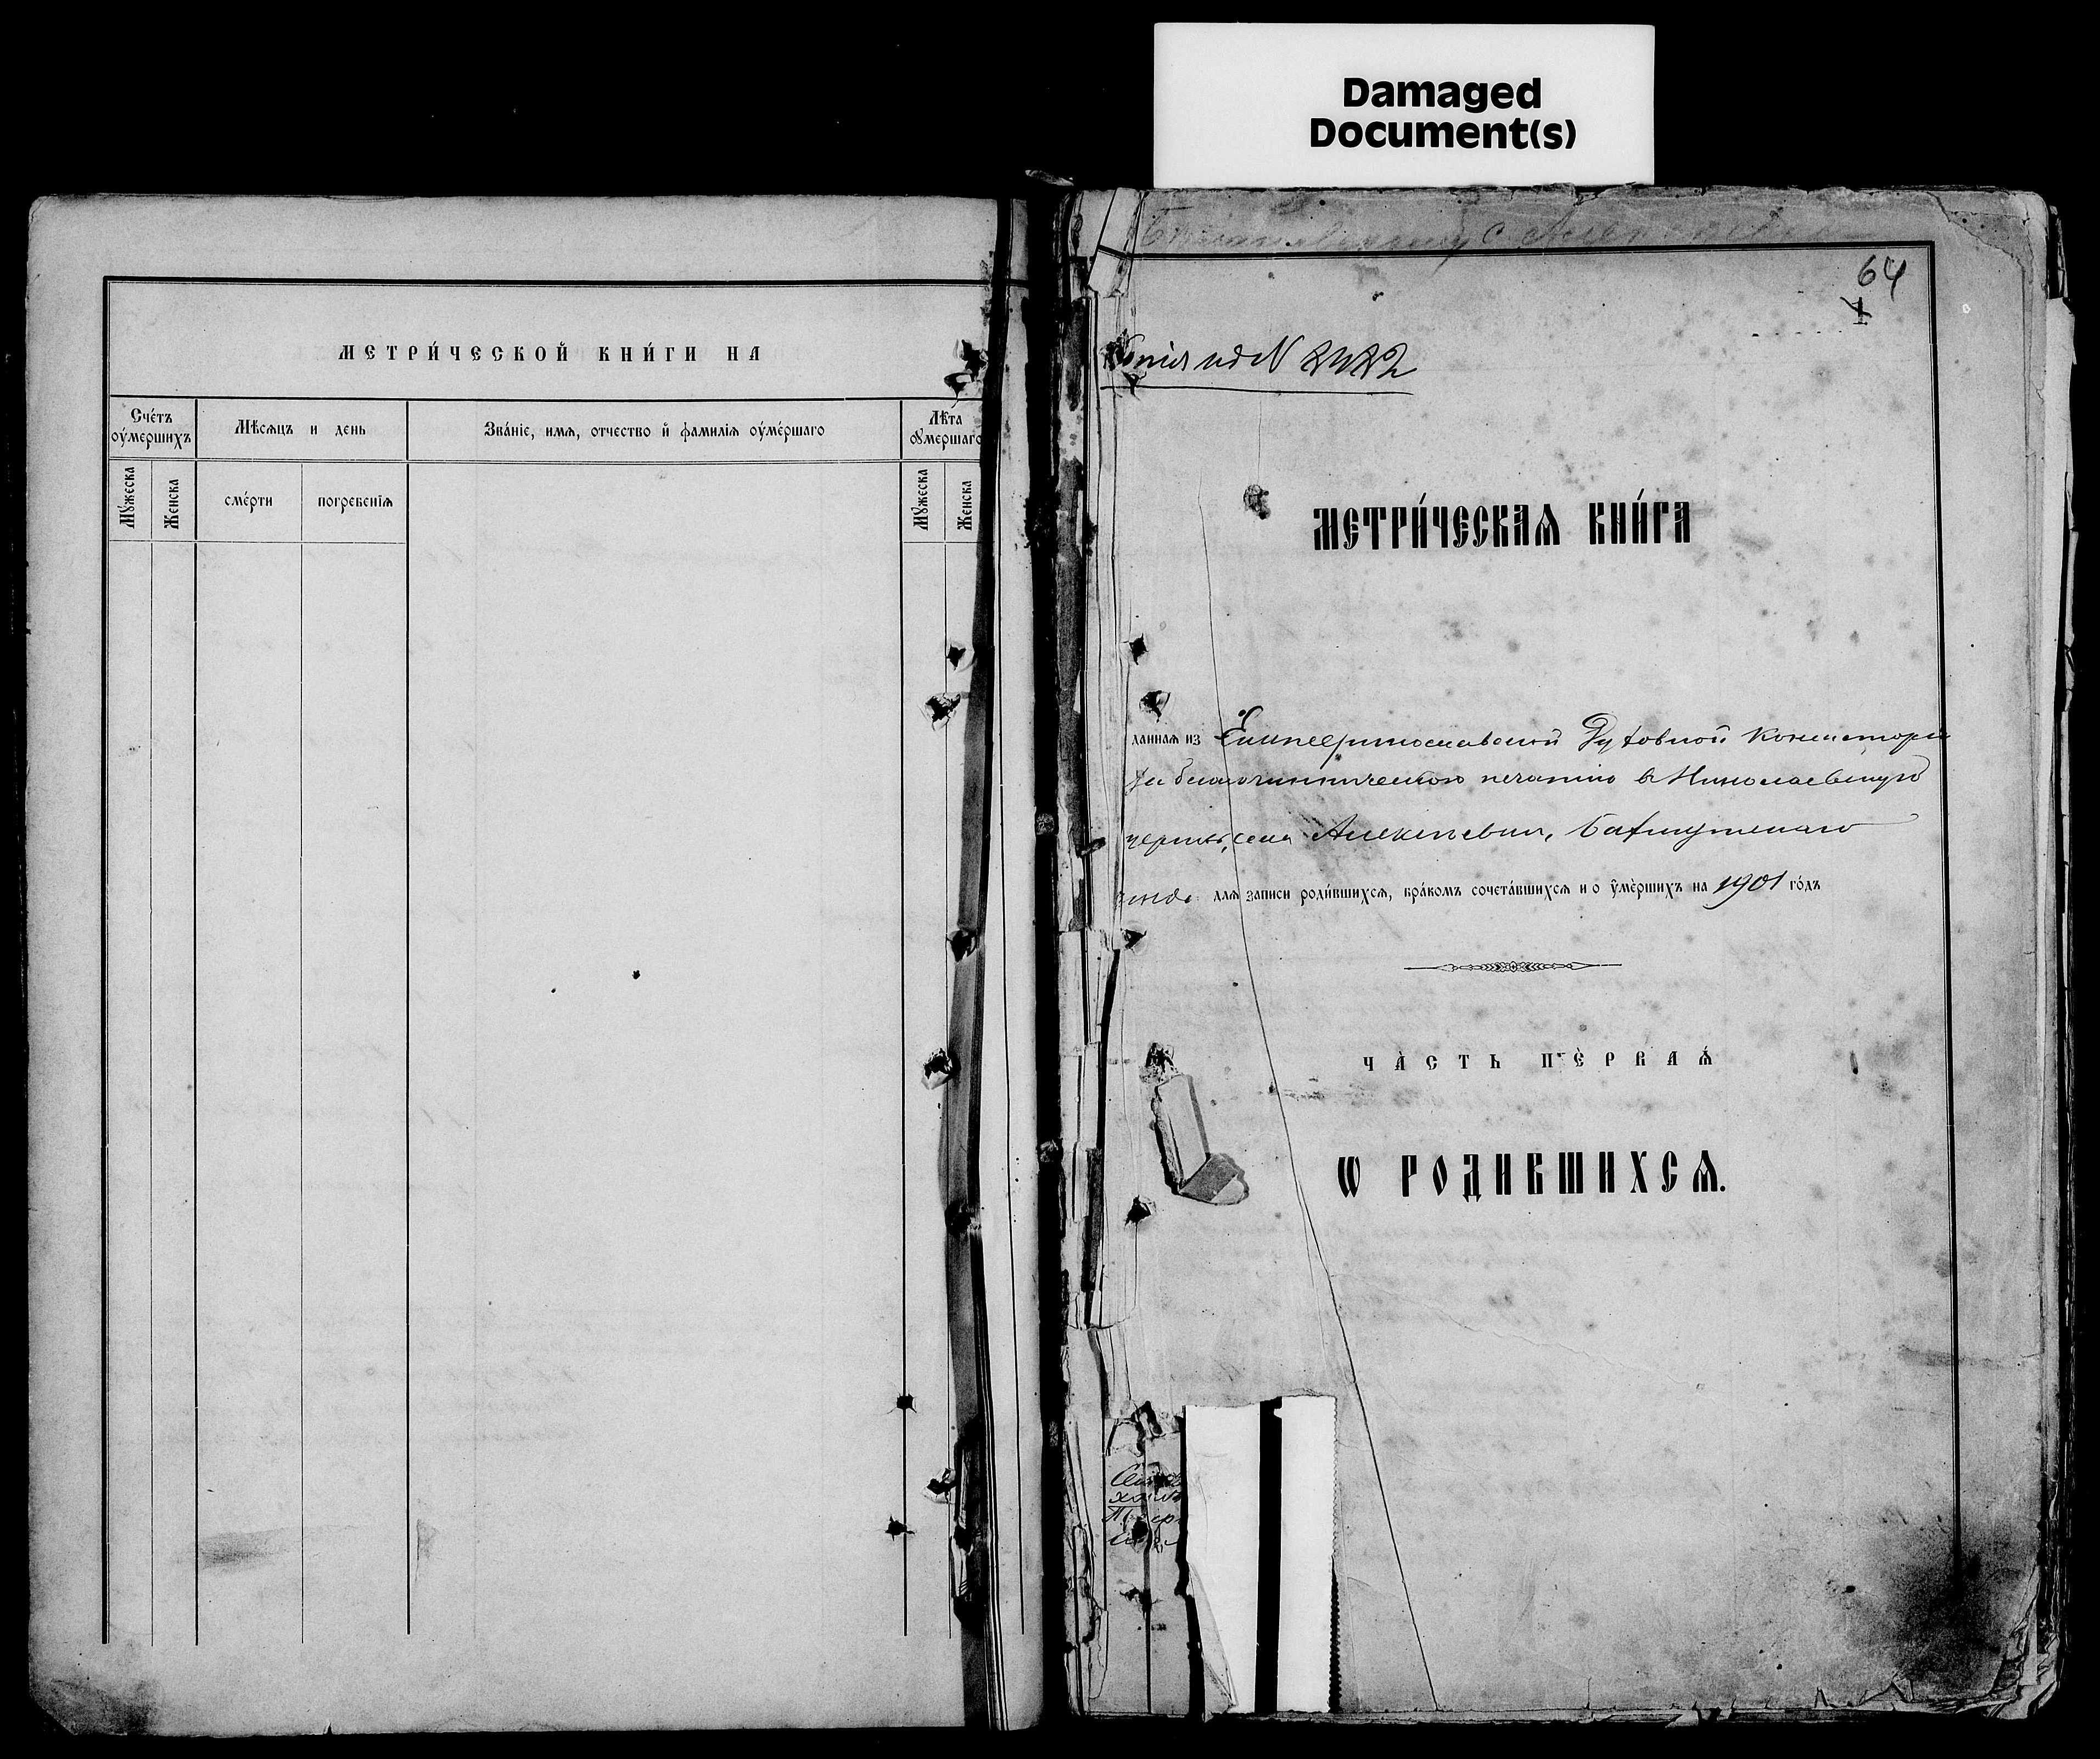 Damaged
Document(s)
МЕТРИ́ЧЕСКОЙ КНИ́ГИ НА
Сче́тъ
оу́мершихъ
Мѣсѧцъ и день
Зва́нїе, имѧ, отчество й фамилїѧ оуме́ршаго
Лѣ́та
оумершаго
Мꙋжеска
Женска
сме́рти
погребенїѧ
Мꙋжеска
Женска
64
1
Копія и д N 2422
МЕТРИ́ЧЕСКАѦ КНИ́ГА
даннаѧ из Екатеринославской Духовной Консисторіи
за благочинническою печатію в Николаевскую
церковь, села Алексѣевки, Бахмутскаго
уѣзда длѧ записи роди́вшихсѧ, бра́комъ сочета́вшихсѧ и о ᲂу҆ме́ршихъ на 1901 го́дъ
ЧА́СТЬ ПЕ́РВАѦ
Ѡ РОДИВШИХСѦ.